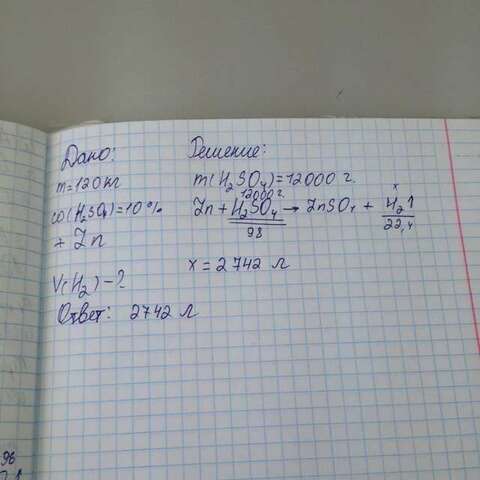 Дано:
m=120кг
ω(H₂SO₄)=10%
+ Zn
V(H₂) – ?
Ответ: 2742 л
Решение:
m(H₂SO₄)=12000 г.
12000г. x
Zn + H₂SO₄ → ZnSO₄ + H₂↑
98 22,4
x = 2742 л
98